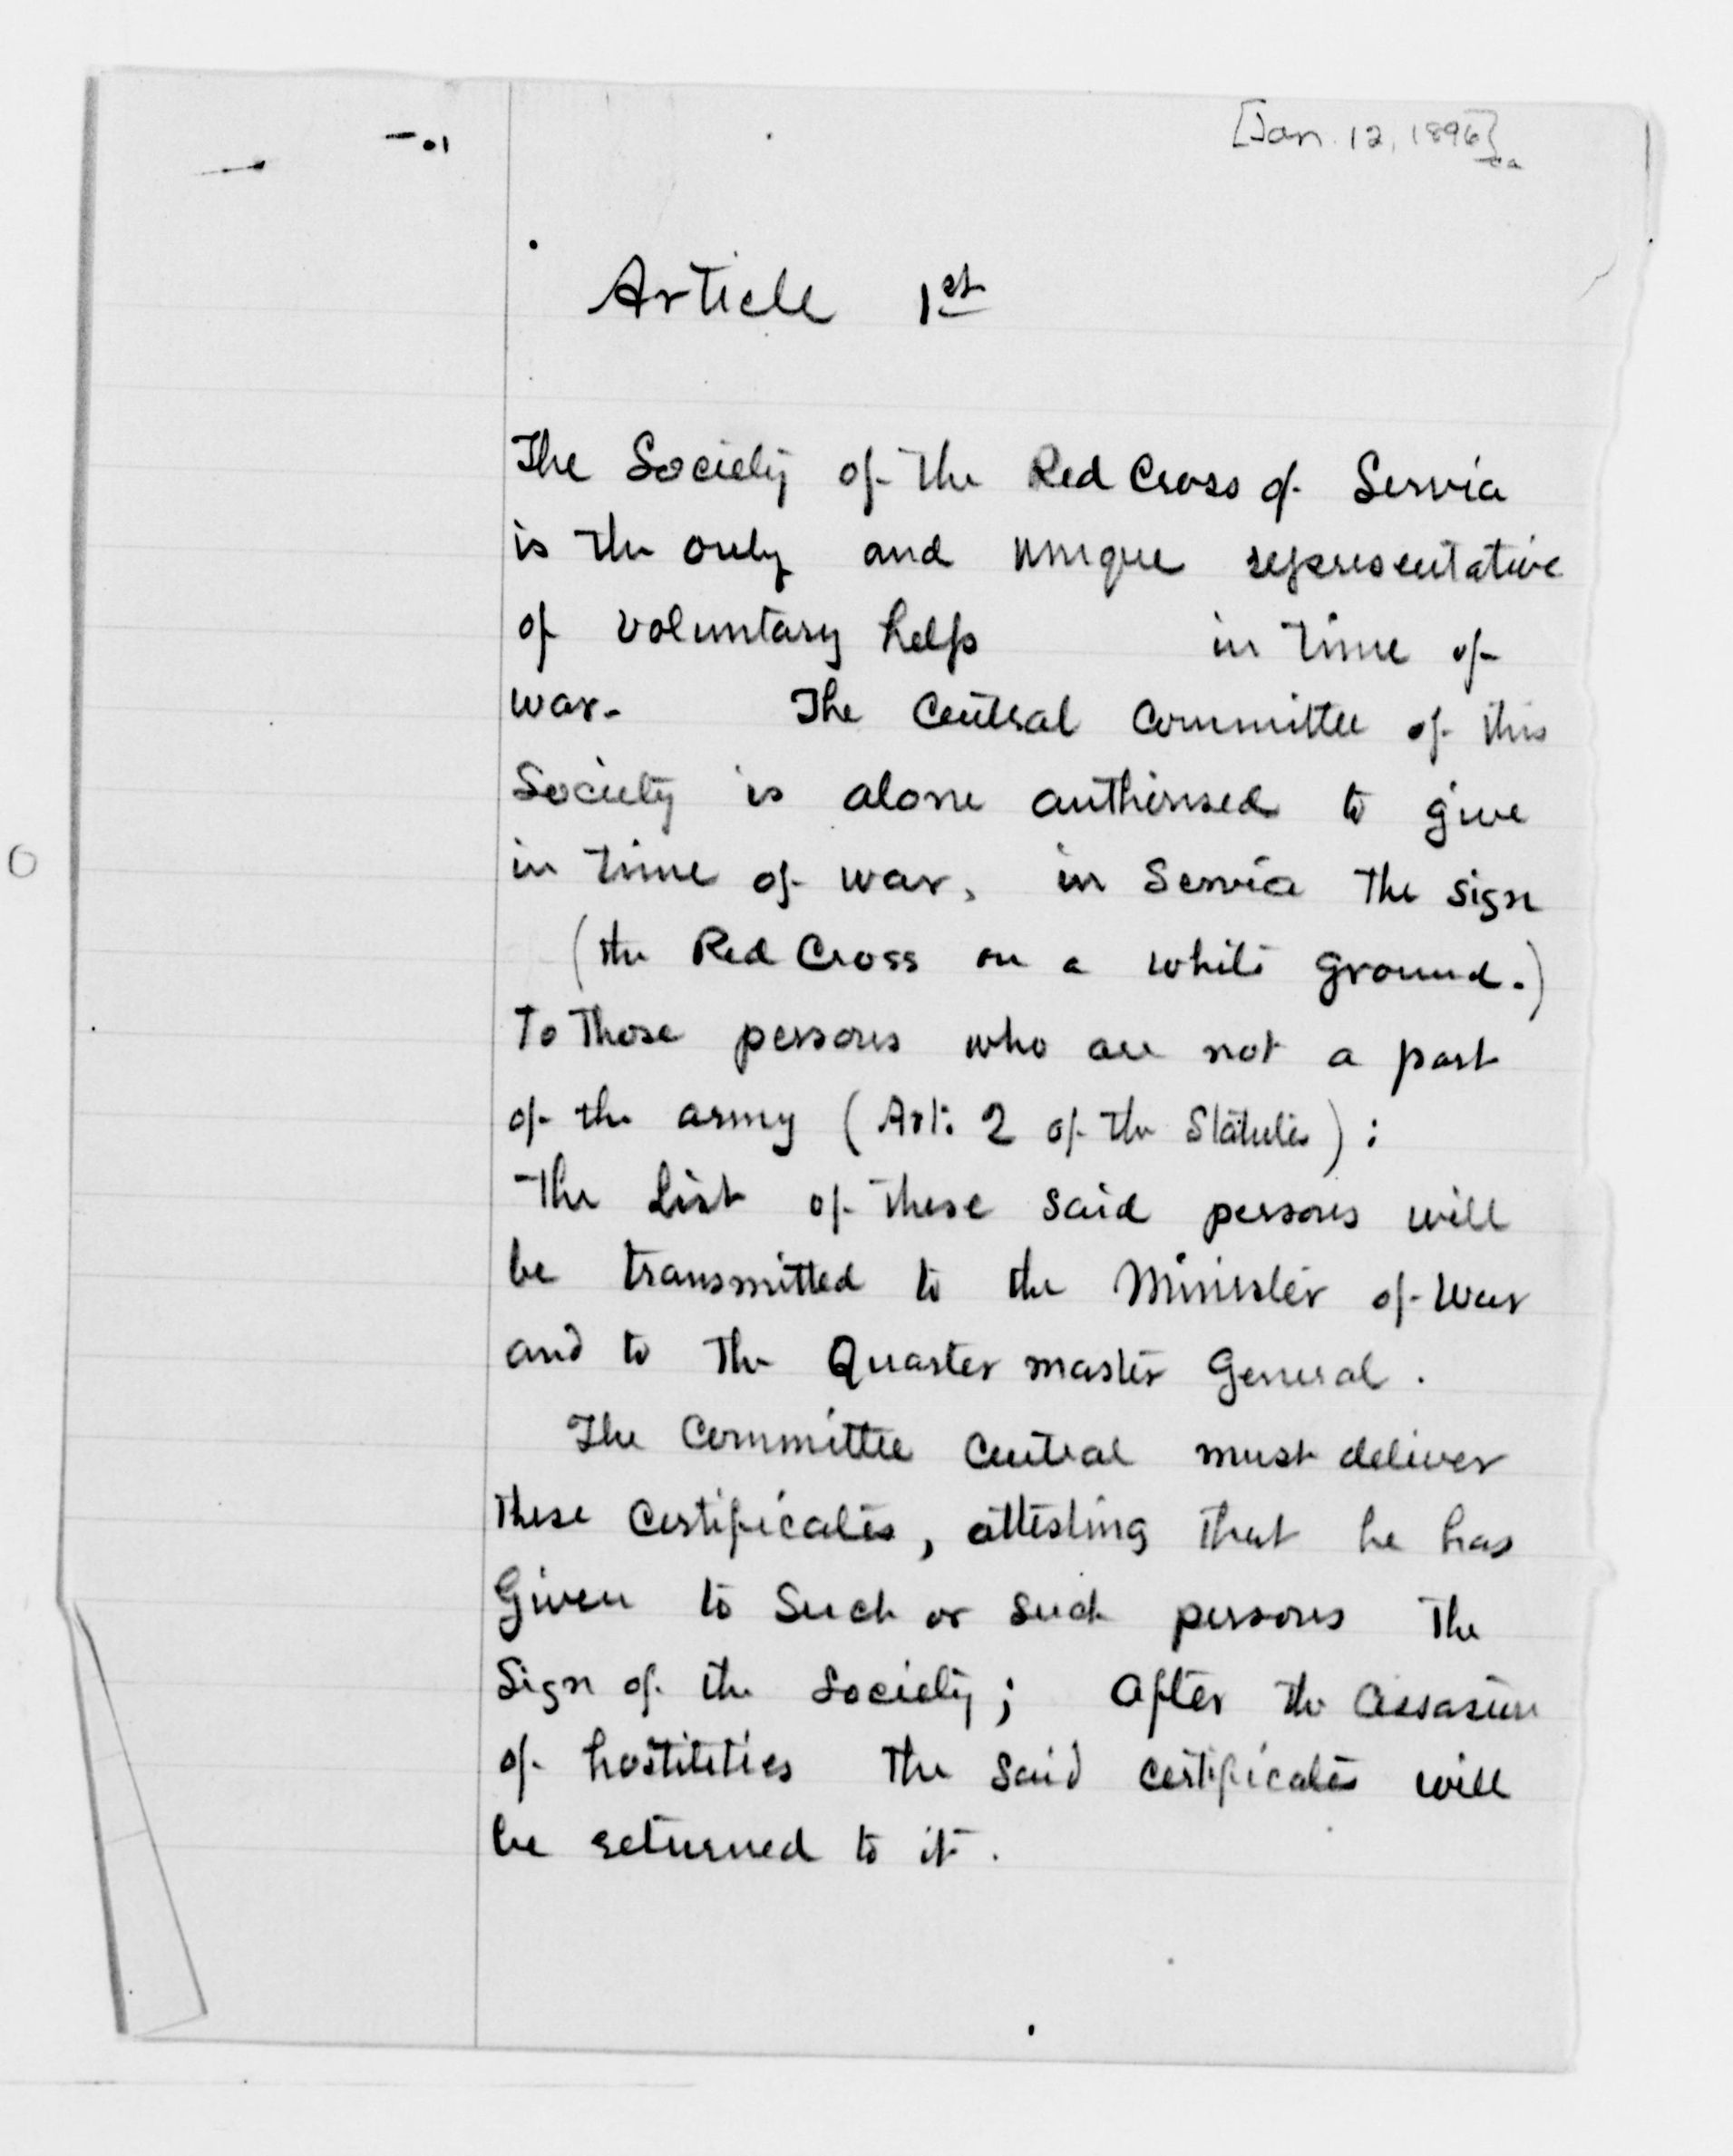 [Jan. 12, 1896] ca
Article 1st
The Society of the Red Cross of Servia
is the only and unique representative
of voluntary help in time of
war. The Central Committee of this
Society is alone authorised to give
in time of war, in Servia the sign
(the Red Cross on a white ground.)
To those persons who are not a part
of the army (Art: 2 of the Statutes):
The List of these said persons will
be transmitted to the Minister of War
and to the Quarter master General.
The Committee Central must deliver
these certificates, attesting that he has
Given to Such or such persons the
Sign of the Society; After the
of hostilities the said certificates will
be returned to it.